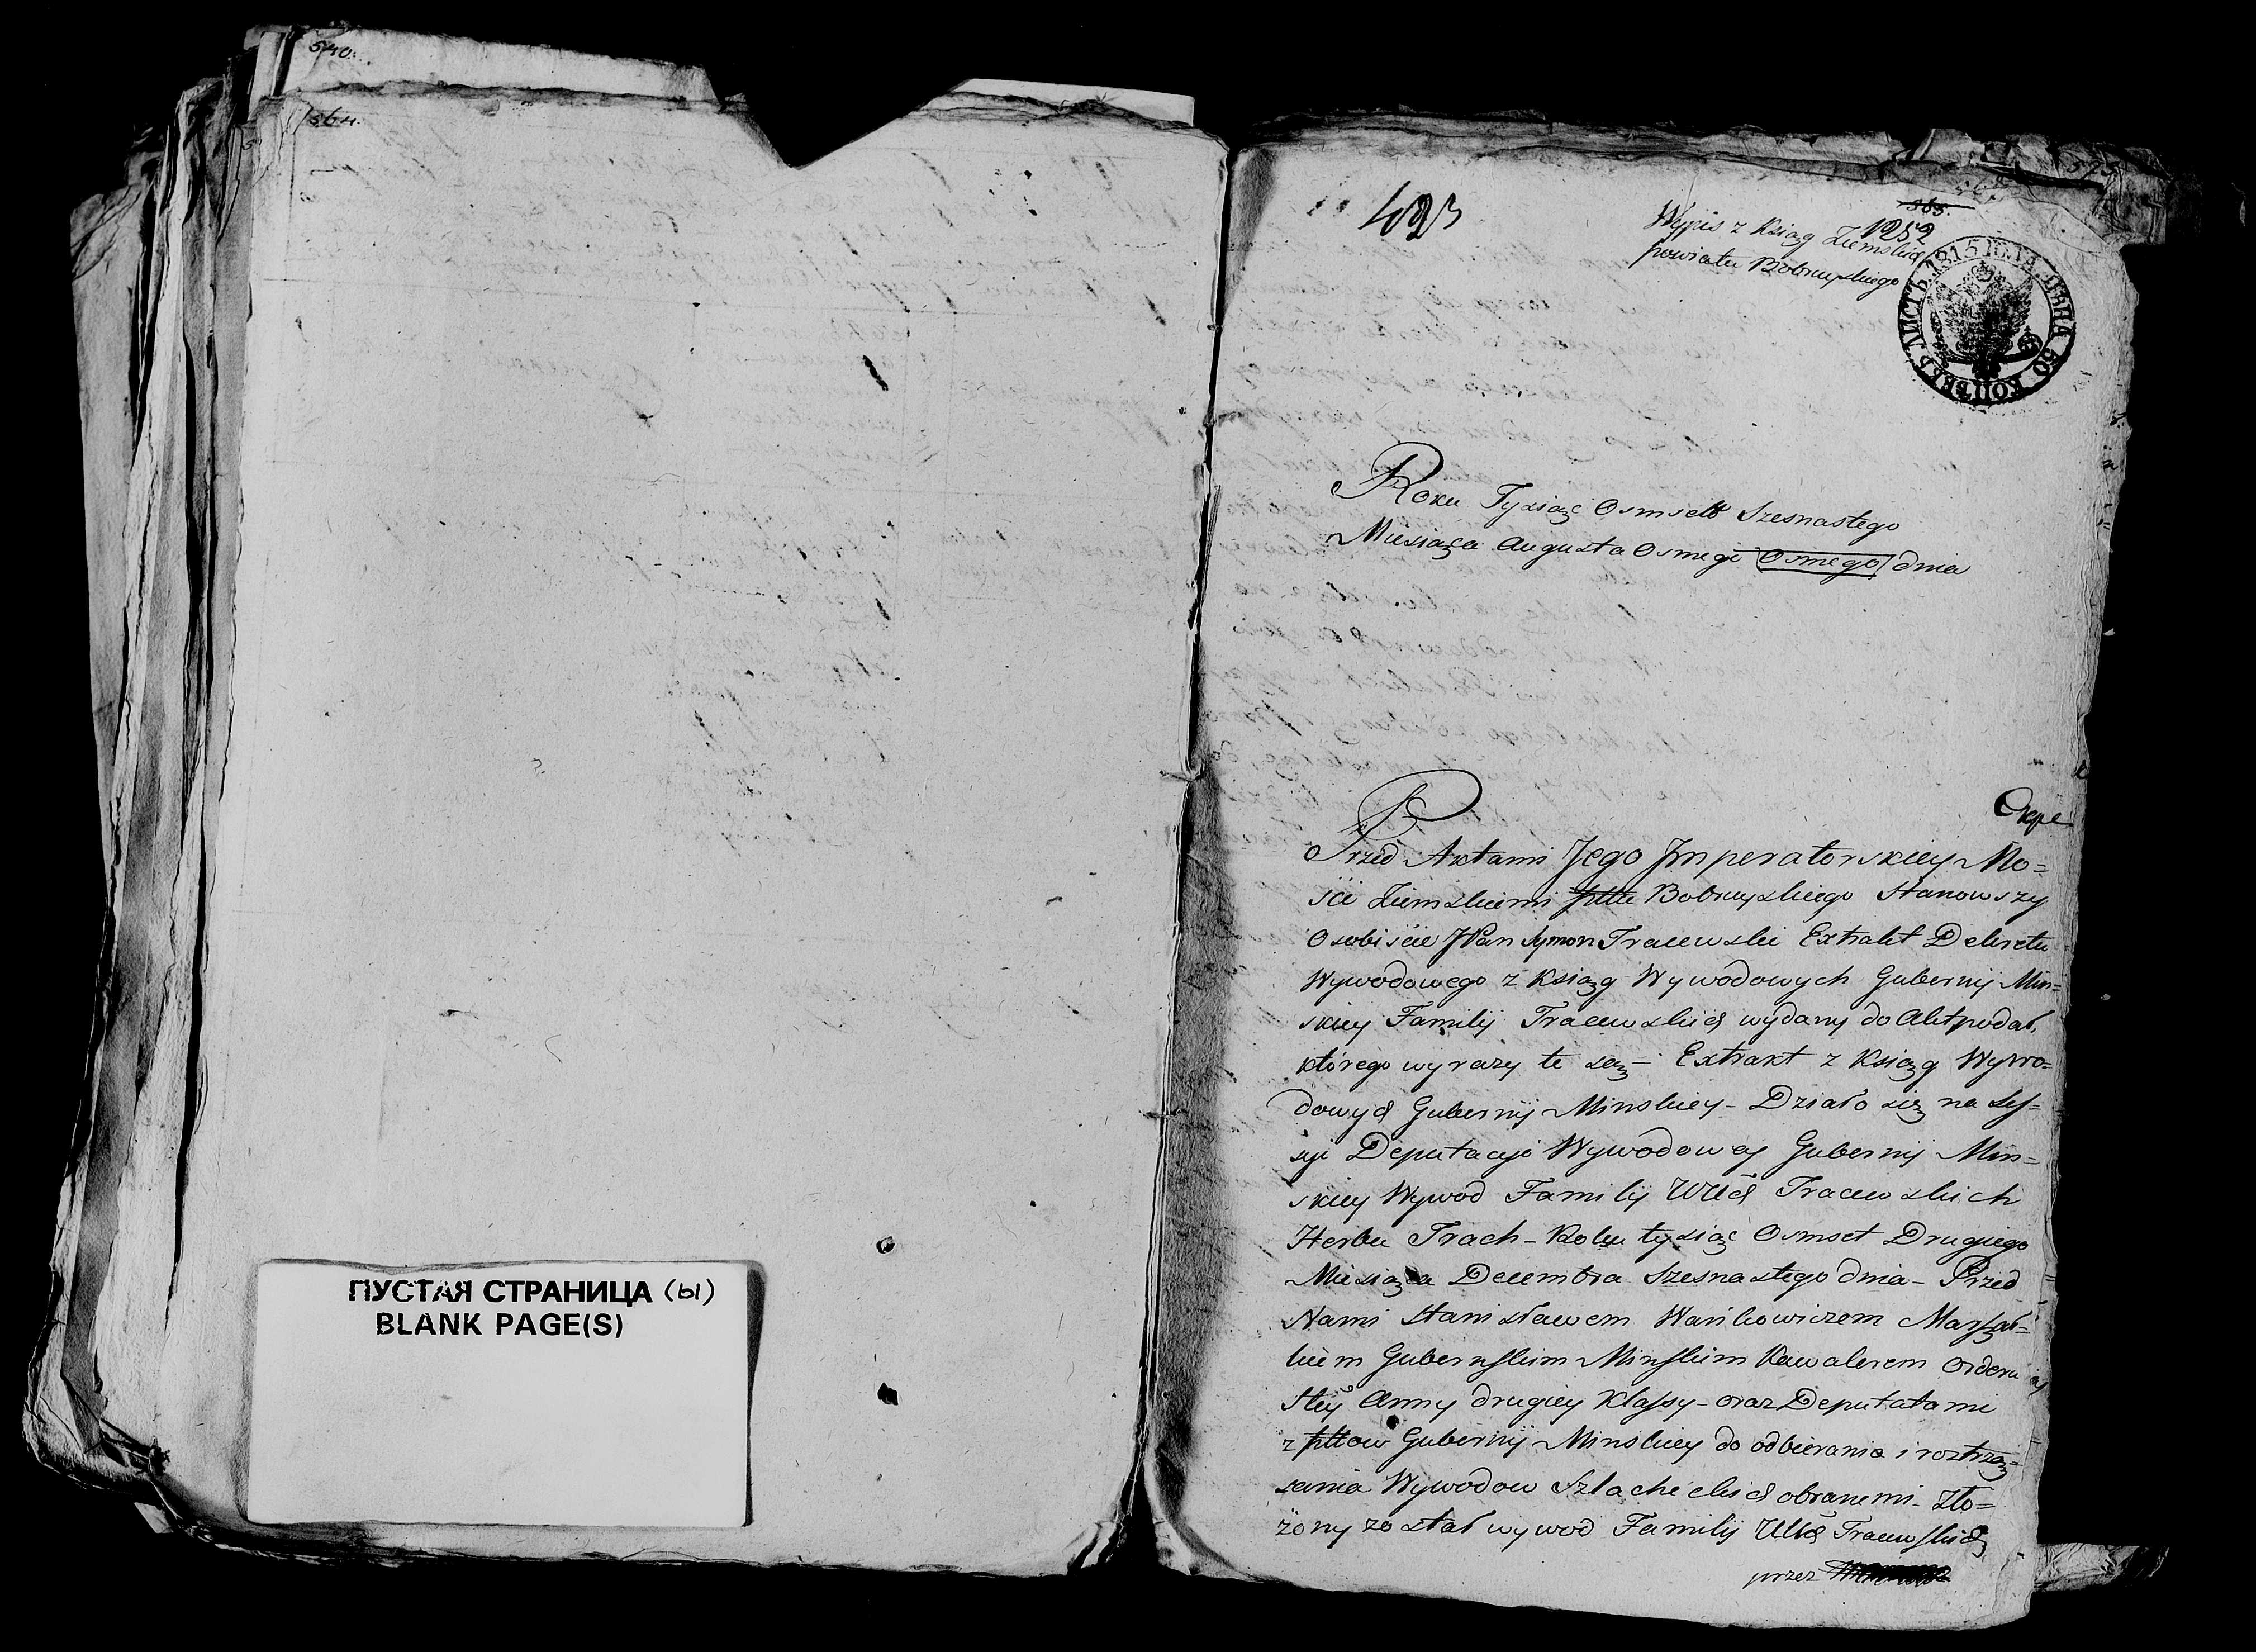 540.
564.
ПУСТАЯ СТРАНИЦА (ы)
BLANK PAGE(S)
423
565.
1252
Wypis z Ksiąg Ziemskich
powiatu Bobruyskiego
1815 ГОДА. ЦѢНА 50 КОПѢЕКЪ ЛИСТЪ.
Roku Tysiąc Osmset Szesnastego
Miesiąca Augusta Osmego Osmego dnia
Przed Aktami Jego Imperatorskiey Mo=
sci Ziemskiemi pttu Bobruyskiego stanowszy
Osobiscie JPan Symon Tracewski Extrakt Dekretu
Wywodowego z Ksiąg Wywodowych Gubernij Min=
skiey Familij Tracewskich wydany do Akt podał.
którego wyrazy te są – Extrakt z Ksiąg Wywo=
dowych Gubernij Minskiey – Działo się na Sy=
syi Deputacyi Wywodowey Gubernij Min=
skiey Wywod Familij WUch Tracewskich
Herbu Trach – Roku tysiąc Osmset Drugiego
Miesiąca Decembra Szesnastego dnia – Przed
Nami Stanisławem Wańkowiczem Marszał=
kiem Gubernskim Minskim Kawalerem Orderu
Stey Anny drugiey Klassy – oraz Deputatami
z pttow Gubernij Minskiey do odbierania i roztrzą=
sania Wywodow Szlacheckich obranemi – Zło=
żony został wywod Familij Uch Tracewskich
przez